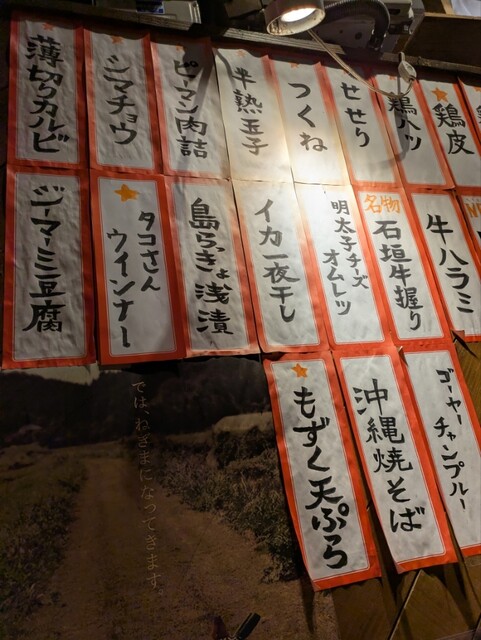 薄切りカルビ
シマチョウ
ピーマン肉詰
半熟玉子
つくね
せせり
鶏ハツ
鶏皮
ジーマーミ豆腐
タコさん
ウインナー
島らっきょ浅漬
イカ一夜干し
明太子チーズ
オムレツ
名物
石垣牛握り
牛ハラミ
もずく天ぷら
沖縄焼そば
ゴーヤー
チャンプルー
では、ねぎまになってきます。